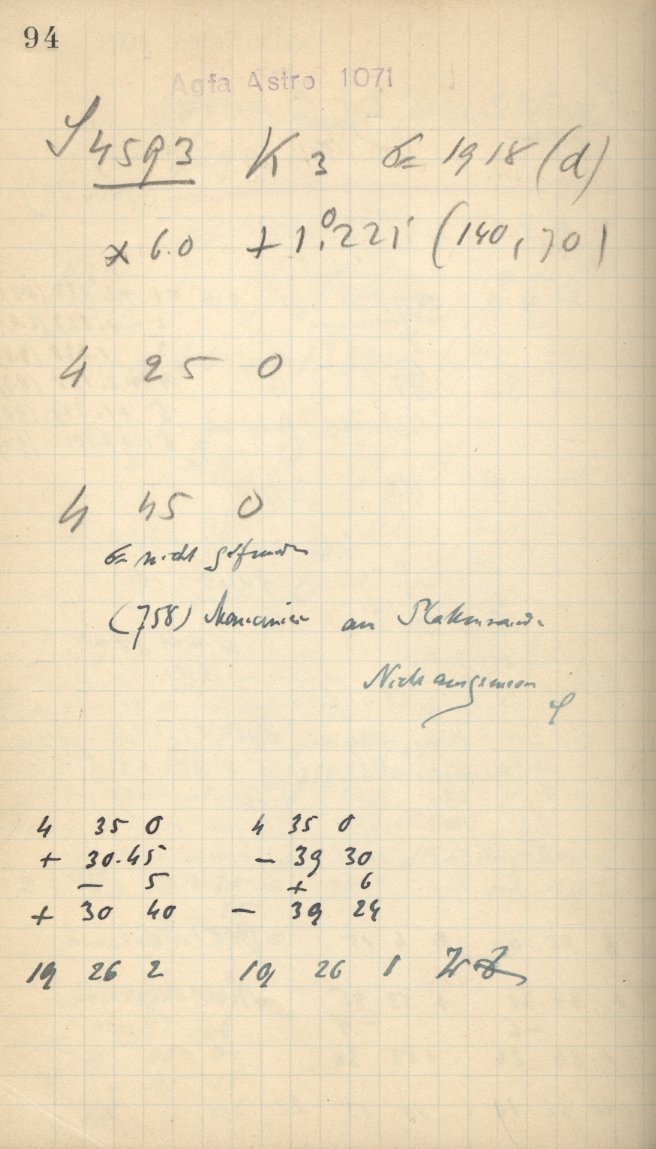 94
Agfa Astro 1071
4593 K 3 = 1918 (d)
x 6.0 + 1.°221 (140, 70)
4 25 0
4 45 0
nicht gefunden
(758) Mancunia am Plattenrande
Nicht ausgemessen
4 35 0 4 35 0
+ 30.45 - 39 30
- 5 + 6
+ 30 40 - 39 24
19 26 2 19 26 1